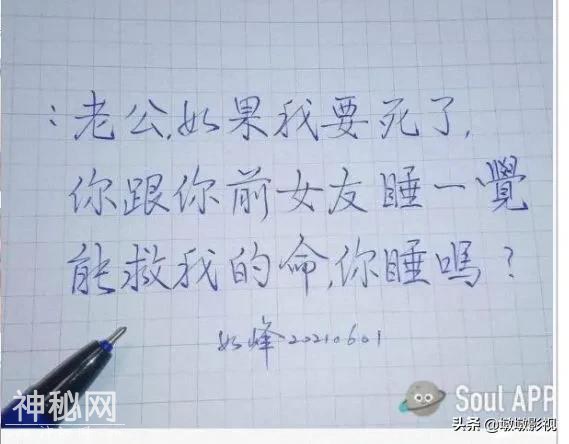 ：老公,如果我要死了,
你跟你前女友睡一覺
能救我的命,你睡嗎？
如峰20210601
Soul APP
神秘网
头条 @墩墩影视